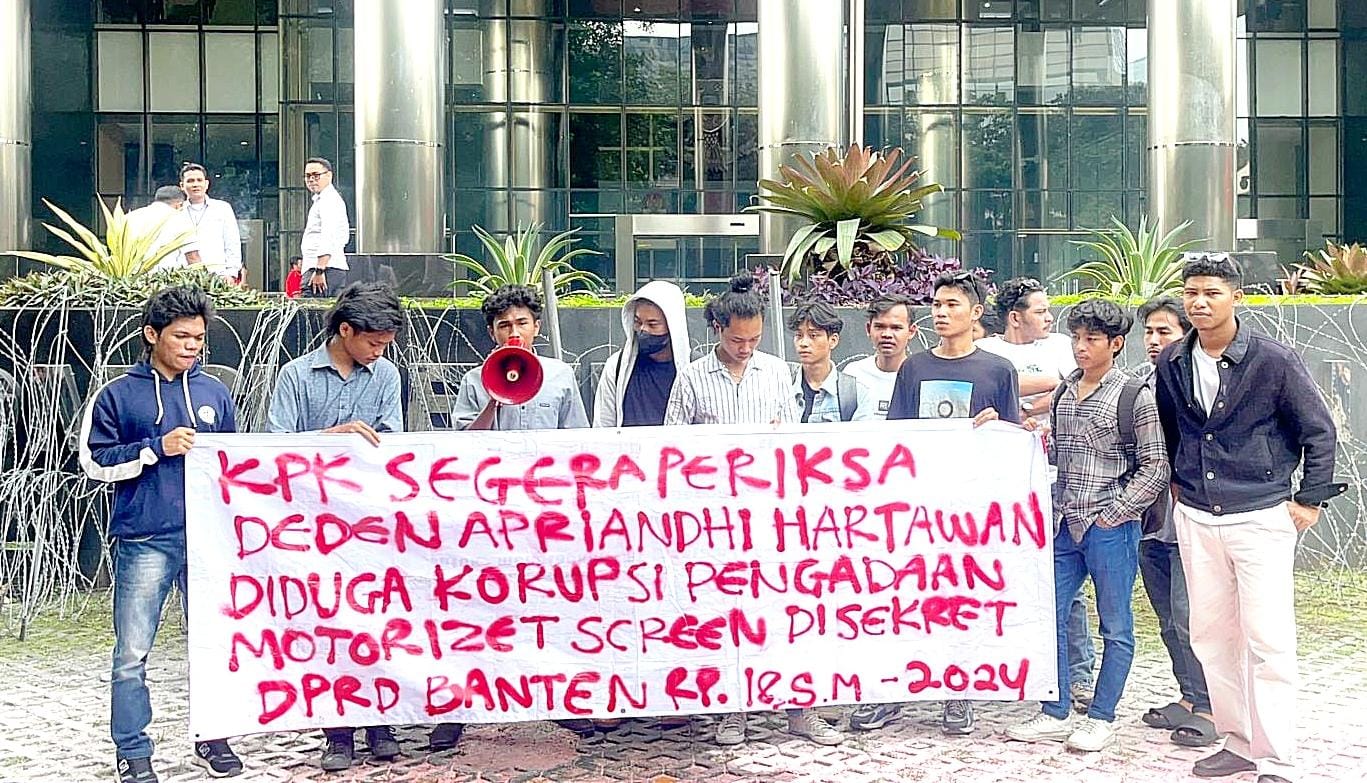 KPK SEGERA PERIKSA
DEDEN APRIANDHI HARTAWAN
DIDUGA KORUPSI PENGADAAN
MOTORIZET SCREEN DISEKRET
DPRD BANTEN RP. 18,5.M - 2024